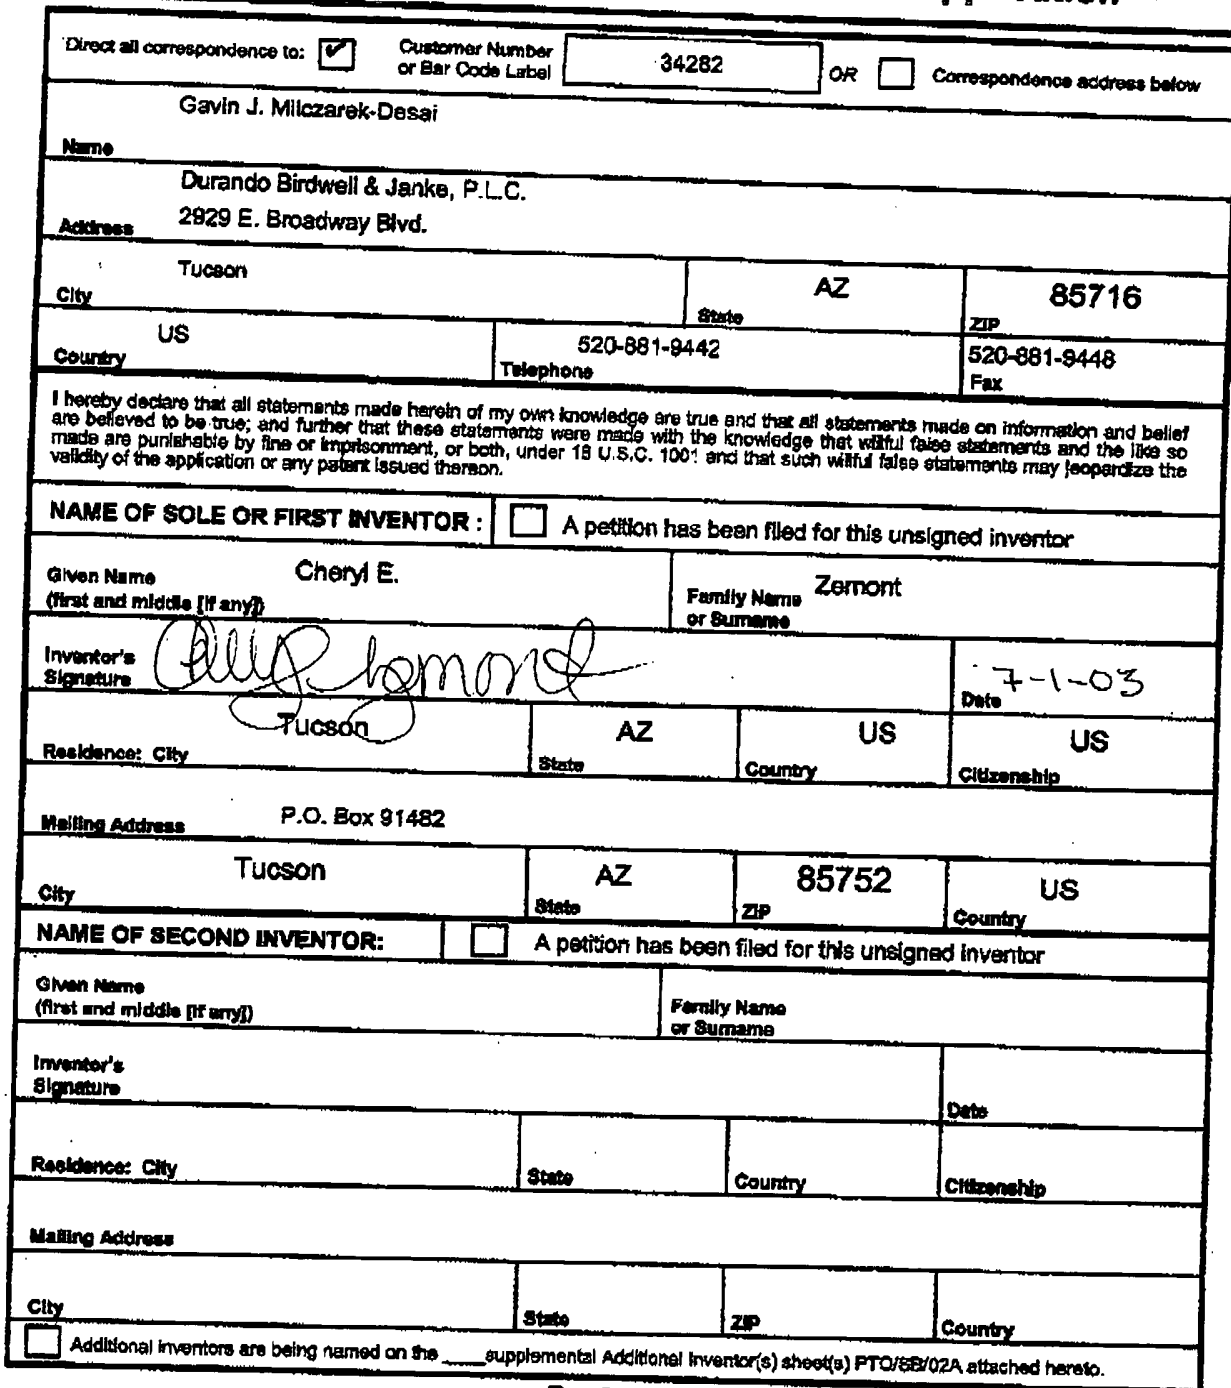 Direct all correspondence to: ✔ Customer Number or Bar Code Label 34282 OR Correspondence address below
Gavin J. Milczarek-Desai
Name
Durando Birdwell & Janke, P.L.C.
Address 2929 E. Broadway Blvd.
Tucson AZ 85716
City State ZIP
US 520-881-9442 520-881-9448
Country Telephone Fax
I hereby declare that all statements made herein of my own knowledge are true and that all statements made on information and belief
are believed to be true; and further that these statements were made with the knowledge that willful false statements and the like so
made are punishable by fine or imprisonment, or both, under 18 U.S.C. 1001 and that such willful false statements may jeopardize the
validity of the application or any patent issued thereon.
NAME OF SOLE OR FIRST INVENTOR : A petition has been filed for this unsigned inventor
Given Name Cheryl E. Family Name Zemont
(first and middle [if any]) or Surname
Inventor's
Signature Date 7-1-03
Tucson AZ US US
Residence: City State Country Citizenship
Mailing Address P.O. Box 91482
Tucson AZ 85752 US
City State ZIP Country
NAME OF SECOND INVENTOR: A petition has been filed for this unsigned inventor
Given Name Family Name
(first and middle [if any]) or Surname
Inventor's
Signature Date
Residence: City State Country Citizenship
Mailing Address
City State ZIP Country
Additional inventors are being named on the ____supplemental Additional Inventor(s) sheet(s) PTO/SB/02A attached hereto.